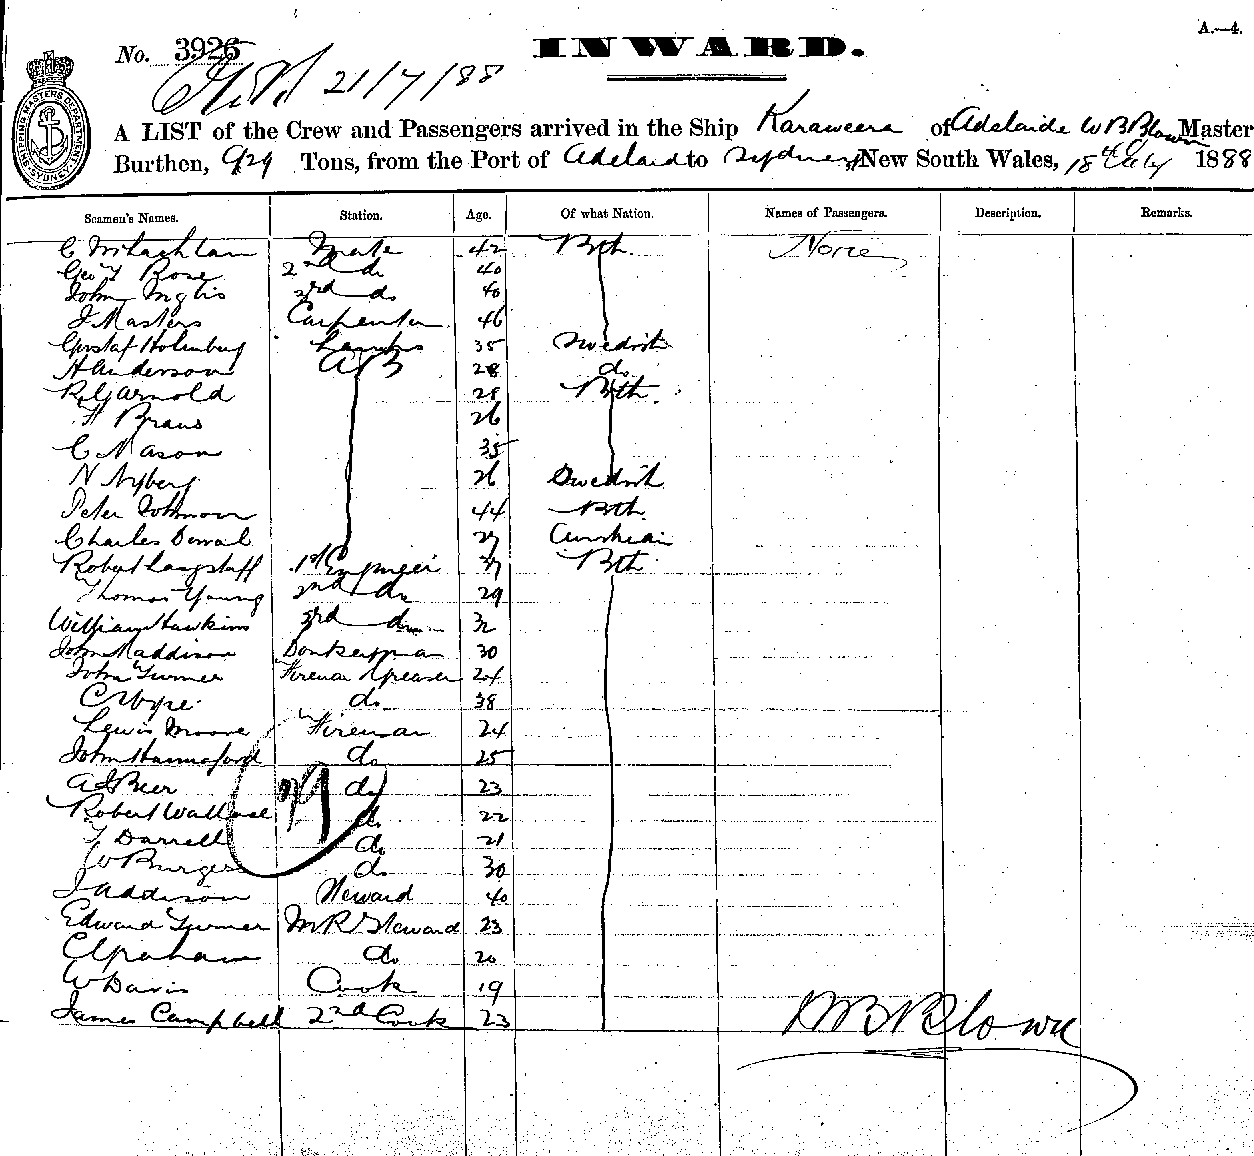 A.—4.
No. 3926
INWARD.
21/7/88
SHIPPING MASTERS DEPARTMENT SYDNEY
A LIST of the Crew and Passengers arrived in the Ship Karaweera of Adelaide W B Blown Master
Burthen, 929 Tons, from the Port of Adelaide to Sydney, New South Wales, 18th July 1888
Seamen's Names. Station. Age. Of what Nation. Names of Passengers. Description. Remarks.
C McLachlan Mate 42 Bth. None
Geo T Rose 2nd do 40
John Inglis 3rd do 40
J Masters Carpenter 46
Gustaf Holmberg Lamps 35 Swedish
H Anderson AB 28 do
R G Arnold 28 Bth.
H Braus 26
C Mason 35
N Nyberg 26 Swedish
Peter Johnson 44 Bth.
Charles 27
Robert Langstaff 1st Engineer 37 Bth.
Thomas Young 2nd do 29
William Hawkins 3rd do 32
John Maddison Donkeyman 30
John Turner Fireman Greaser 24
C do 38
Lewis Moore Fireman 24
John Hannaford do 25
A J Beer do 23
Robert Wallace do 22
T Darrell do 21
W Burges do 30
J Addison Steward 40
Edward Turner M R Steward 23
C Graham do 20
W Davis Cook 19
James Campbell 2nd Cook 23
29
W B Blown